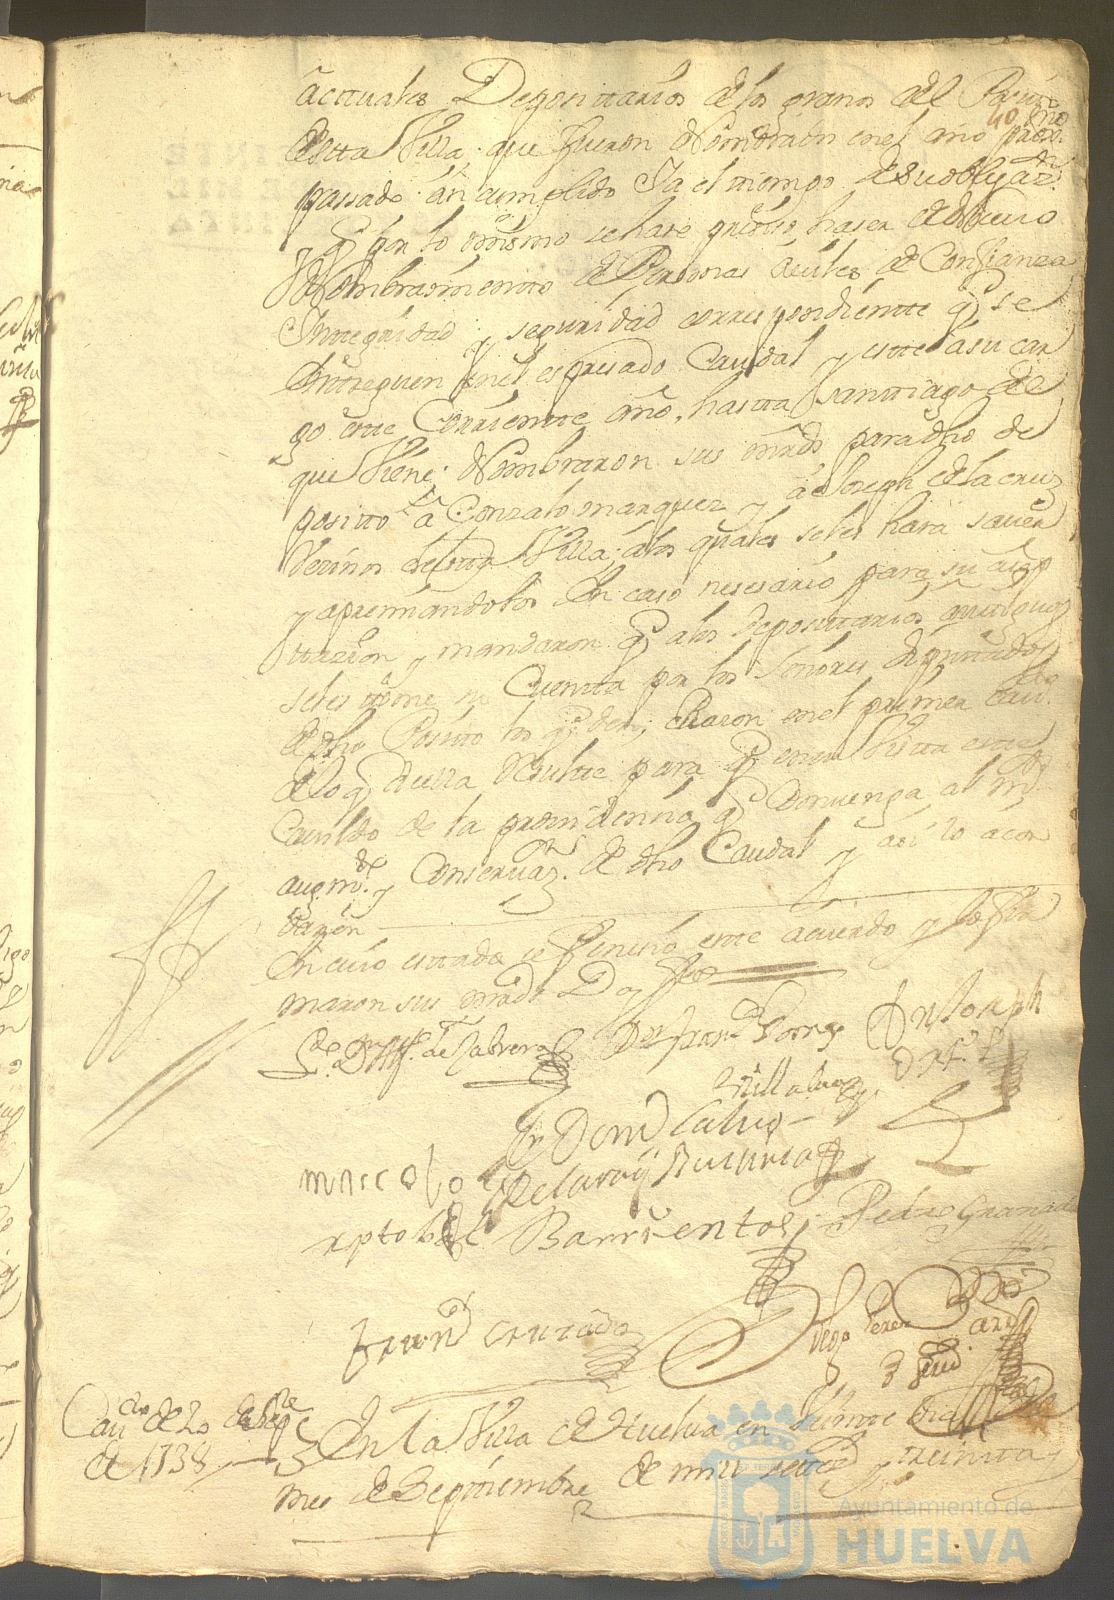 actuales Depositarios de los granos del Posito
40
desta Villa que fueron Nombrados en el año proxmo
passado an cumplido Ya el tiempo de su obligazn
y q por lo mismo se hase preciso haser de Nuevo
Nombramiento de Personas de Confianza
Integridad y seguridad correspondiente q se
entreguen en el espresado Caudal y este a su car
go este Corriente año, hasta Santiago de el
que Viene; Nombraron sus mrds para dho de
posito a Gonzalo marquez y a Joseph de la cruz
Vezinos desta Villa, a los quales se les hara saver
y apremiandolos en caso nesesario para su azep
tazion y mandaron q a los depositarios antiguos
se les tome la Cuenta por los Señores Diputados
de dho Posito los q en el primer Cavdo
de lo q de ella Resulte para q en su Vista este
Cavildo de la providencia q Convenga al
augmto y Conservazn de dho Caudal y asi lo acor
daron
En cuio estado se Fenesio este acuerdo y lo fir
maron sus mrds Doy fee
de Cabrera
Villalva
Dn Domo Calvo
Barrientos
Pedro Granado
Franco Cruzado
Diego Perez
Cavdo de 20 de Sepre
de 1738
En la Villa de Huelva en Veinte dias del
mes de Septiembre de mill settos y treinta y
Ayuntamiento de
HUELVA